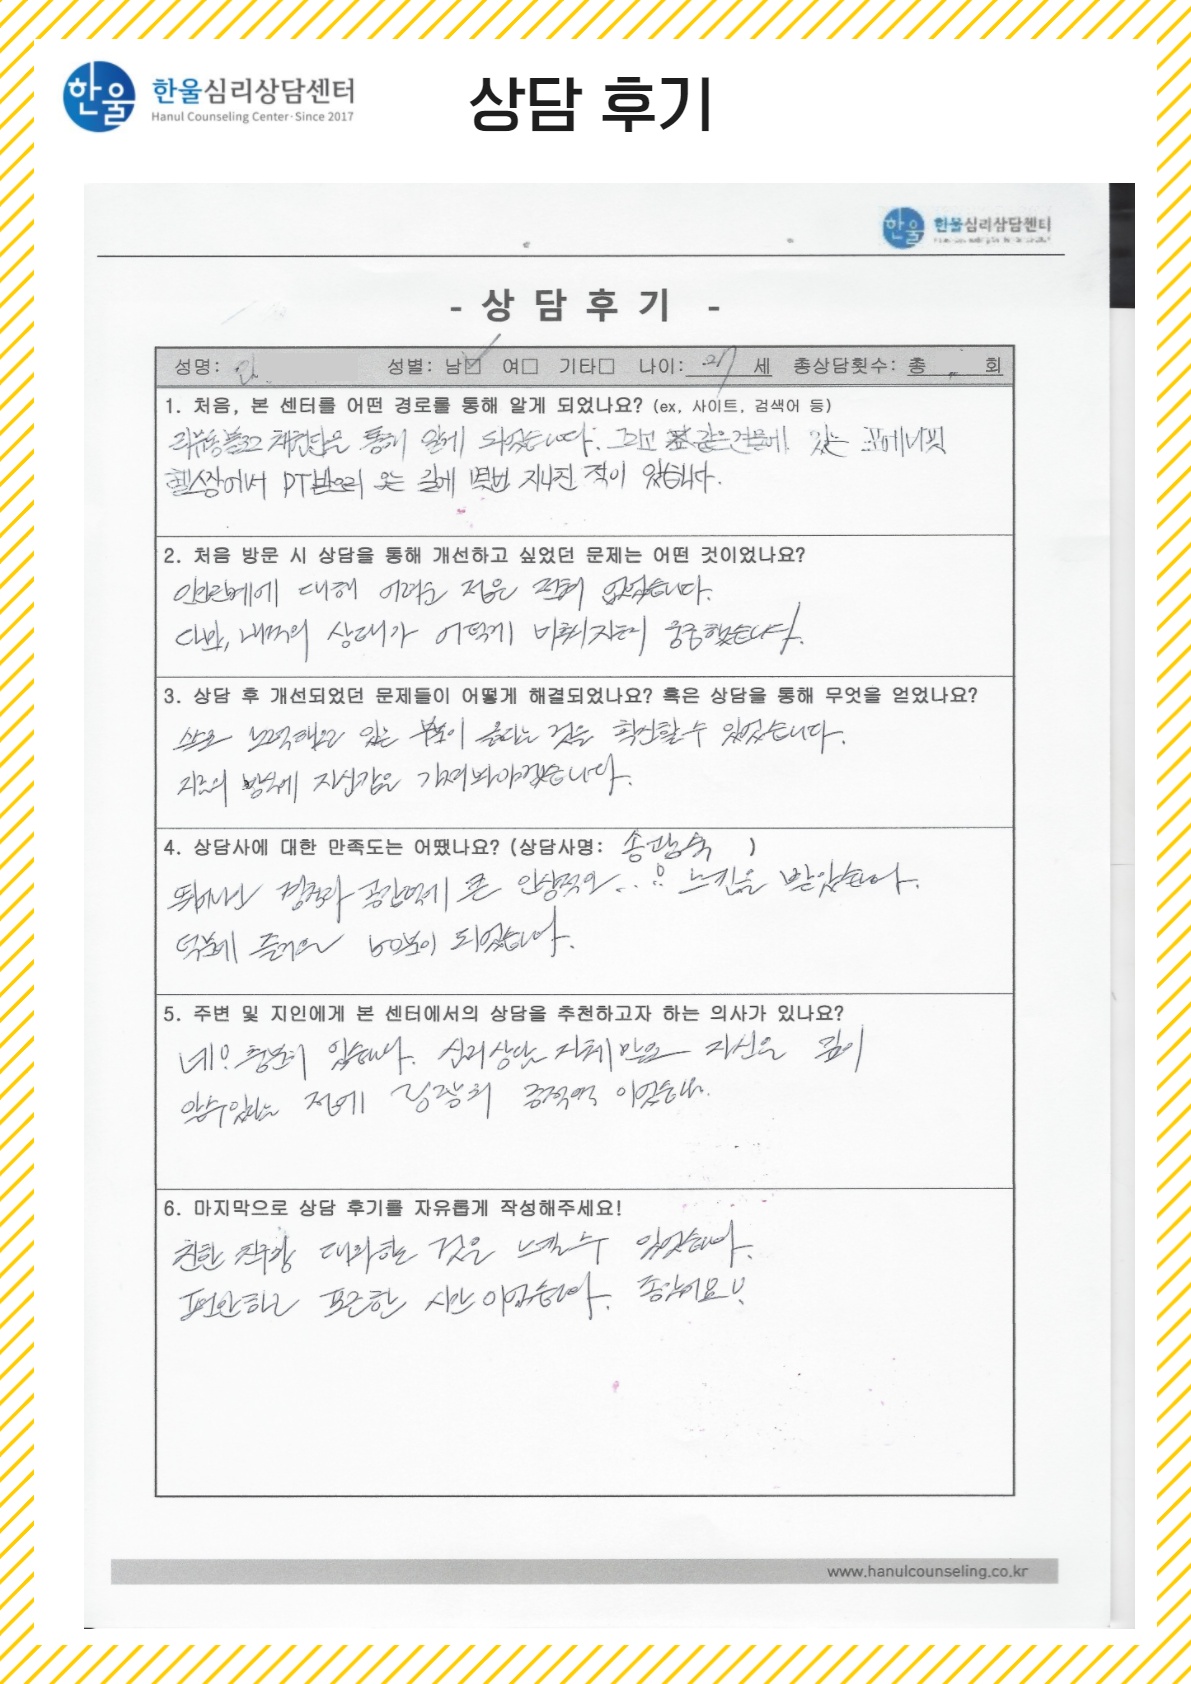 한울
한울심리상담센터
Hanul Counseling Center·Since 2017
상담 후기
한울
한울심리상담센터
- 상 담 후 기 -
성명: 성별: 남☑ 여□ 기타□ 나이: 세 총상담횟수: 총 회
1. 처음, 본 센터를 어떤 경로를 통해 알게 되었나요? (ex, 사이트, 검색어 등)
블로그 체험단을 통해 알게 되었습니다. 그리고 같은건물에 있는 피트니스
헬스장에서 PT받으러 오는 길에 몇번 지나친 적이 있습니다.
2. 처음 방문 시 상담을 통해 개선하고 싶었던 문제는 어떤 것이었나요?
대해 어려운 점은 전혀 없었습니다.
다만, 내면의 상태가 어떻게 비춰지는지 궁금했습니다.
3. 상담 후 개선되었던 문제들이 어떻게 해결되었나요? 혹은 상담을 통해 무엇을 얻었나요?
스스로 노력해오고 있는 부분이 옳다는 것을 확신할 수 있었습니다.
지금의 방식에 자신감을 가져봐야겠습니다.
4. 상담사에 대한 만족도는 어땠나요? (상담사명: )
뛰어난 경청과 공감력에 큰 인상적인 느낌을 받았습니다.
덕분에 즐거운 50분이 되었습니다.
5. 주변 및 지인에게 본 센터에서의 상담을 추천하고자 하는 의사가 있나요?
네! 충분히 있습니다. 심리상담 자체만으로 자신을 깊이
알수있다는 점에 굉장히 이었습니다.
6. 마지막으로 상담 후기를 자유롭게 작성해주세요!
친한 친구랑 대화하는 것을 느낄 수 있었습니다.
편안하고 포근한 시간이었습니다. 좋았어요!
www.hanulcounseling.co.kr